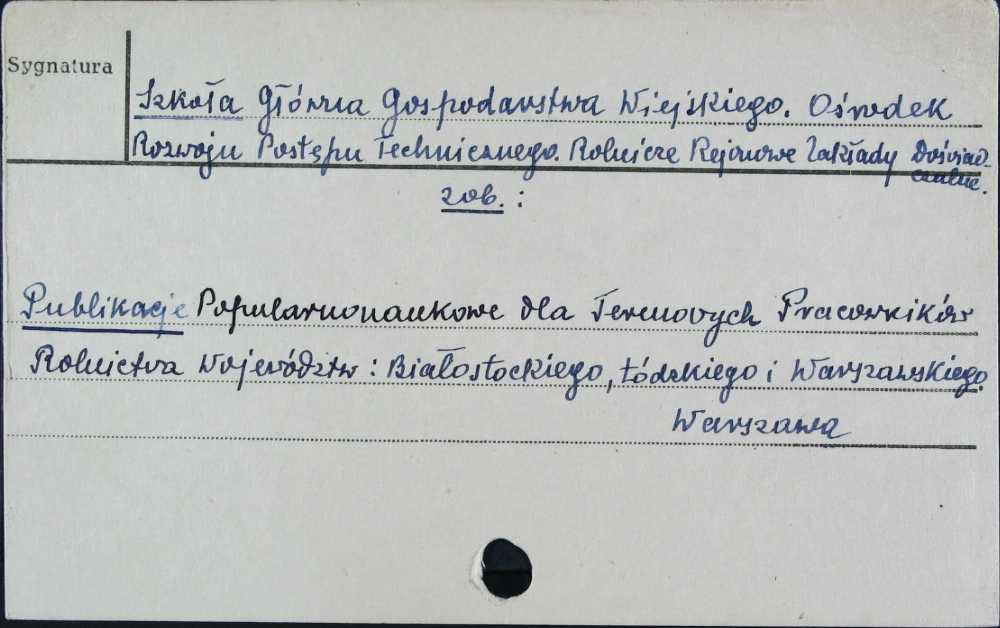 Sygnatura
Szkoła Główna Gospodarstwa Wiejskiego. Ośrodek
Rozwoju Postępu Technicznego. Rolnicze Rejonowe Zakłady Doświad-
czalne.
zob. :
Publikacje Popularnonaukowe dla Terenowych Pracowników
Rolnictwa Województw : Białostockiego, Łódzkiego i Warszawskiego.
Warszawa